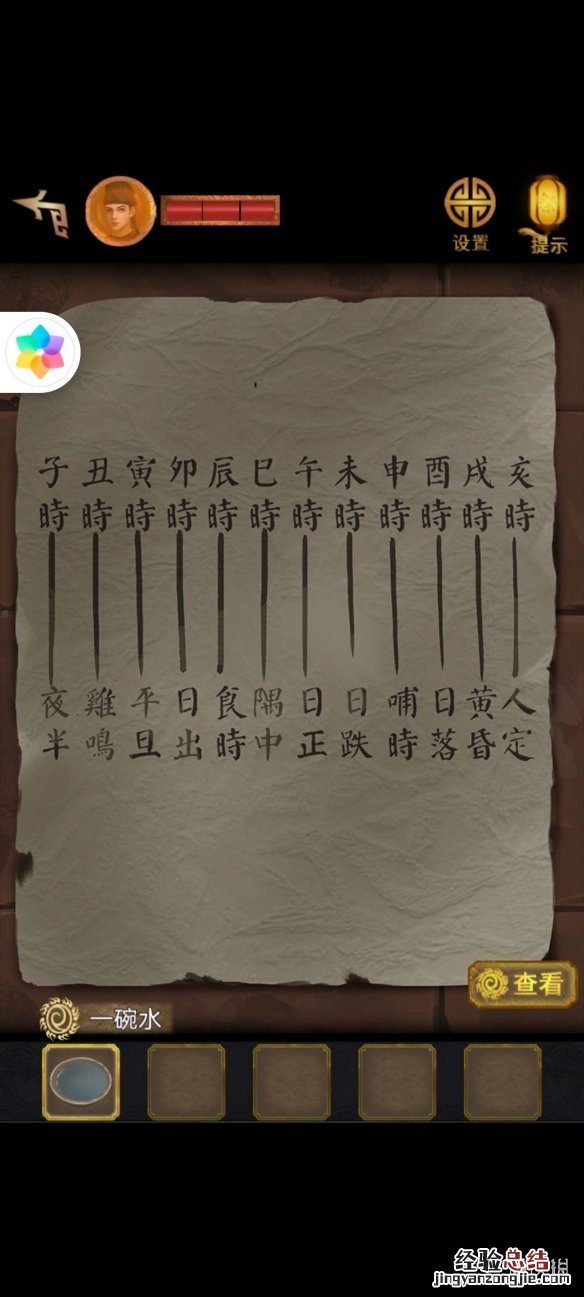 设置
提示
子時 夜半
丑時 雞鳴
寅時 平旦
卯時 日出
辰時 食時
巳時 隅中
午時 日正
未時 日跌
申時 哺時
酉時 日落
戌時 黄昏
亥時 人定
查看
一碗水
经验总结
jingyanzongjie.com